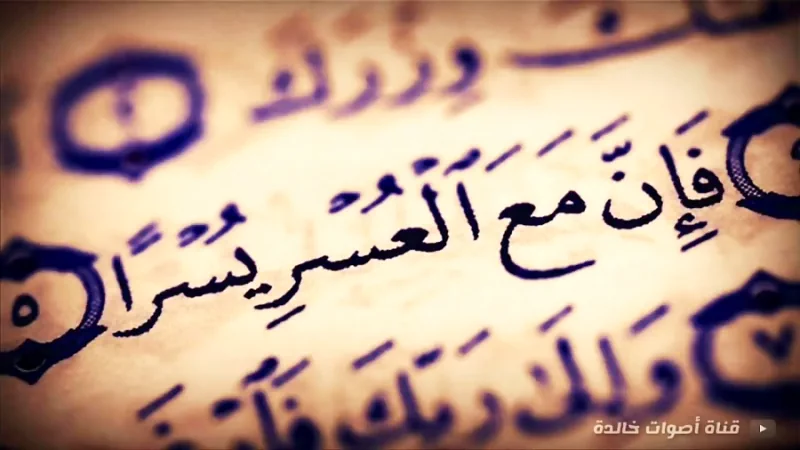 وِزْرَكَ ٢
فَإِنَّ مَعَ ٱلْعُسْرِ يُسْرًا ٥
٧ وَإِلَىٰ رَبِّكَ
قناة أصوات خالدة